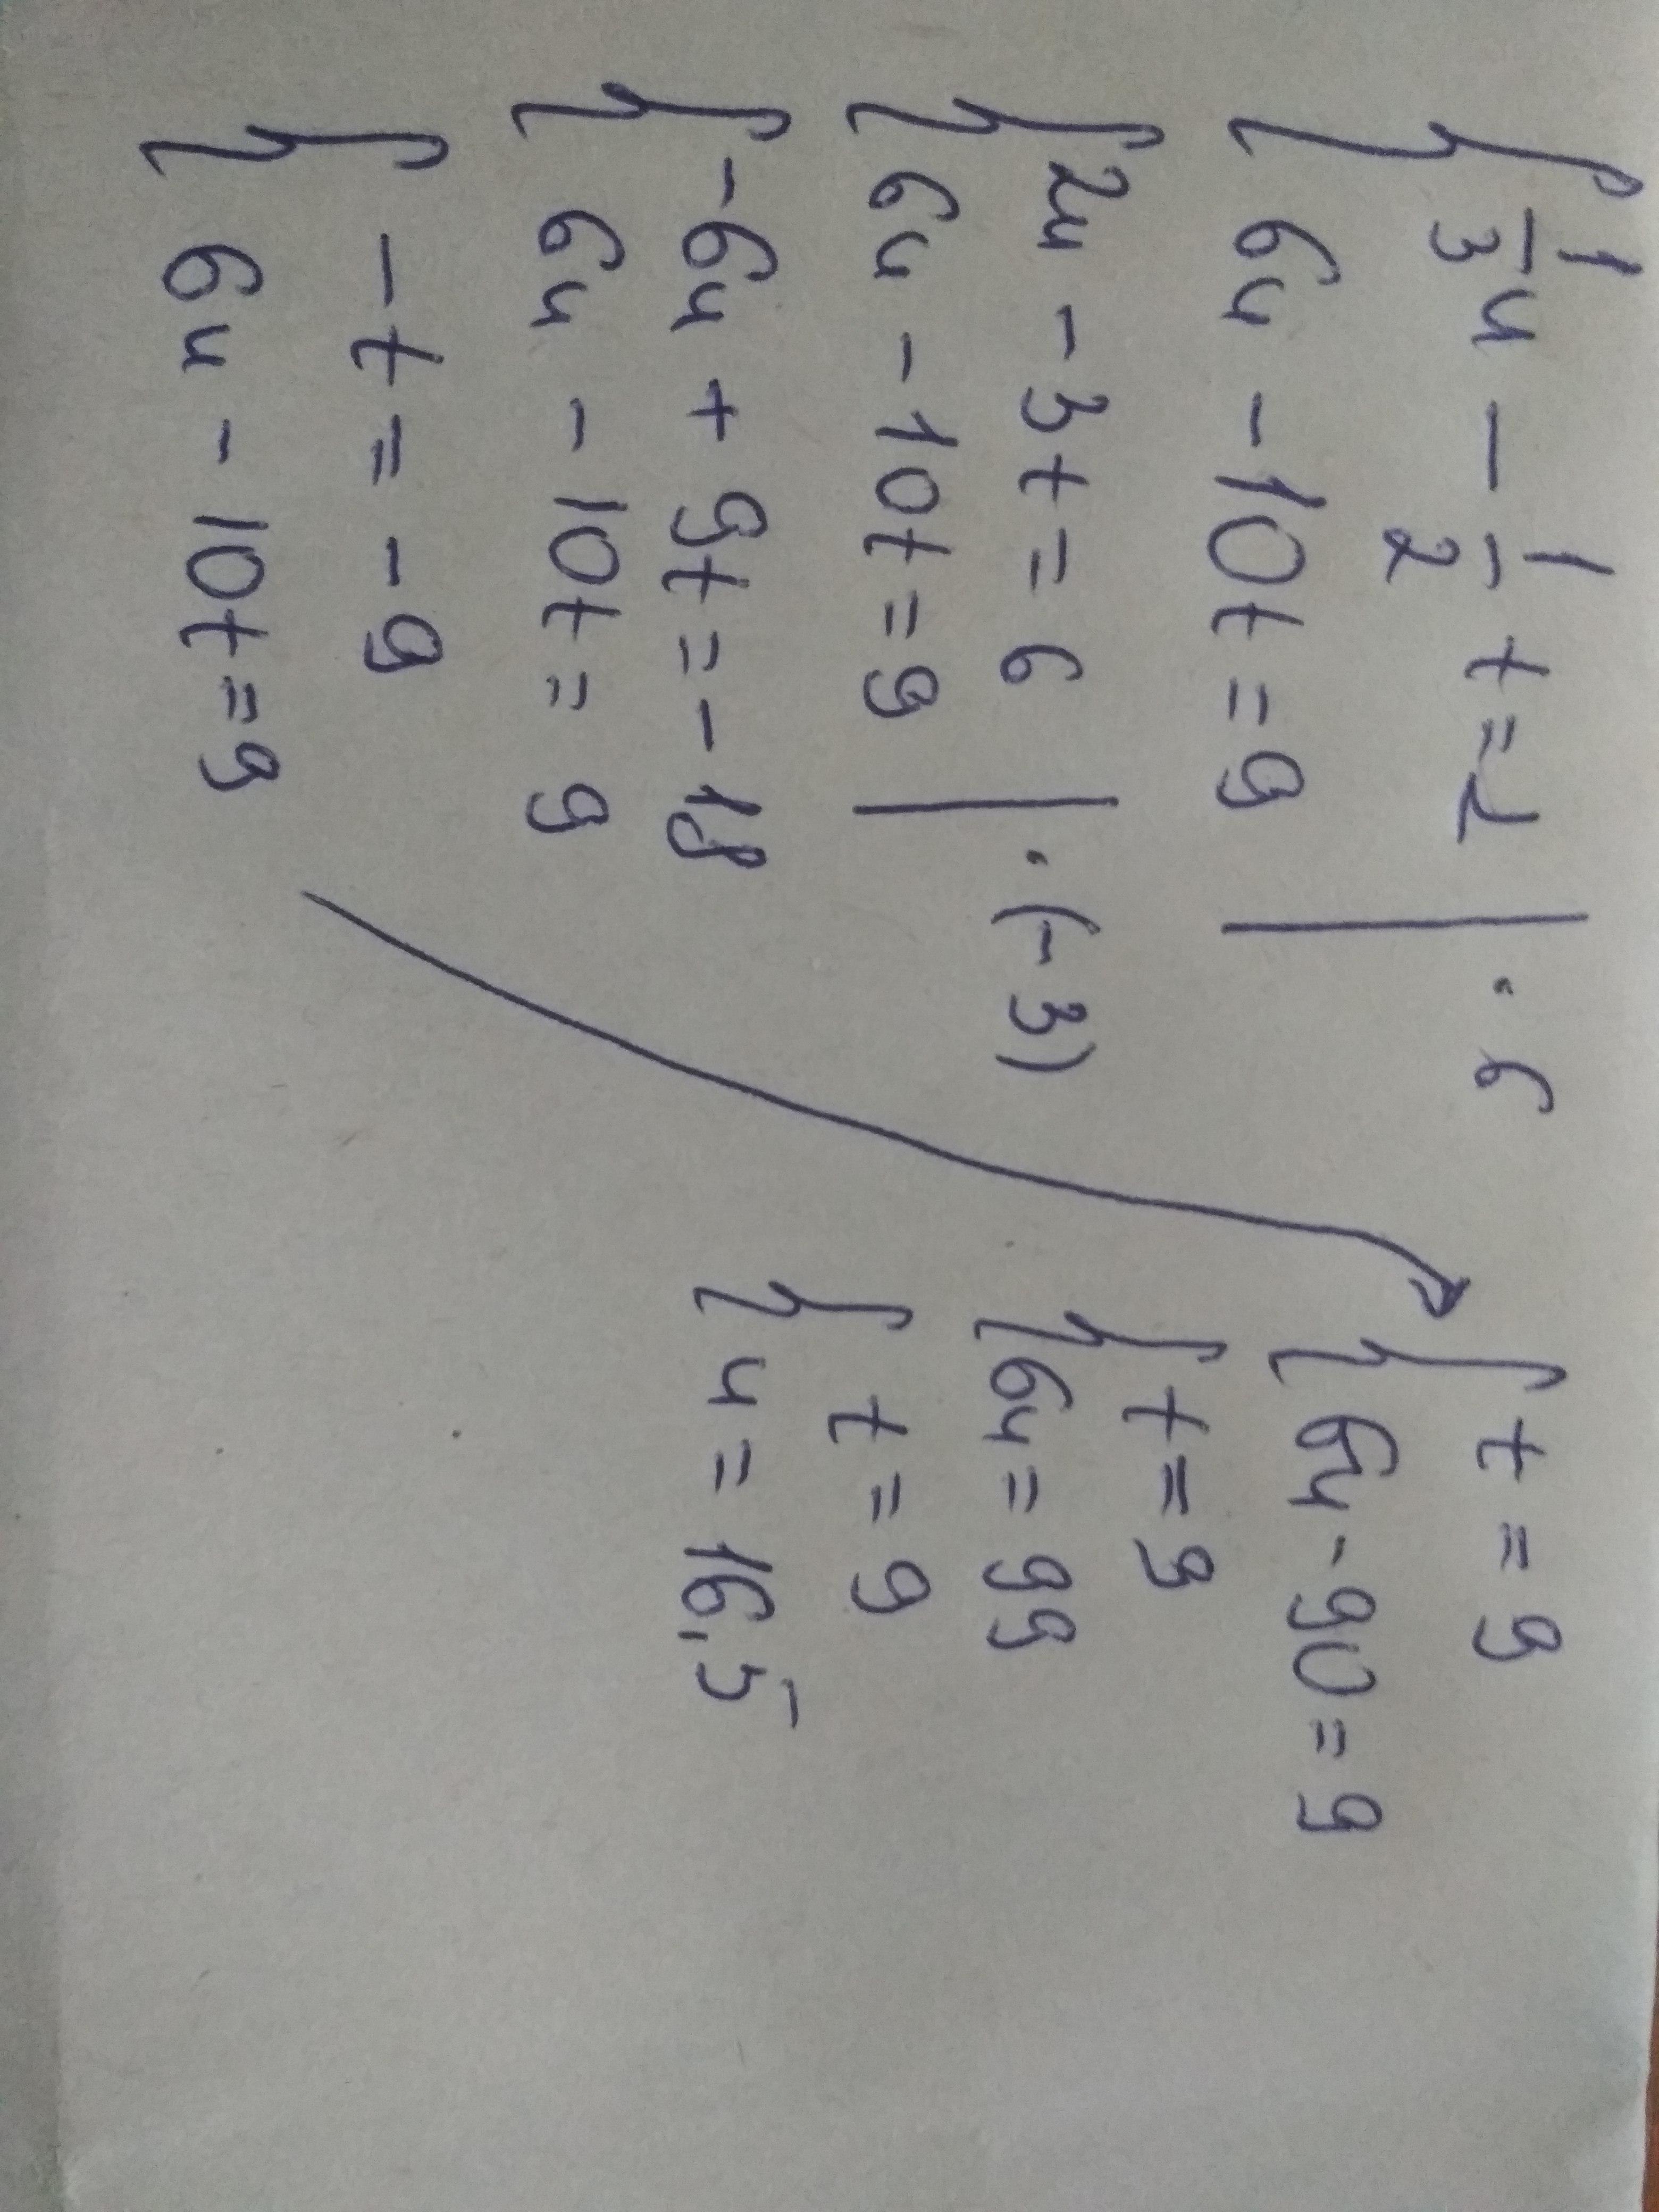 1/3 u - 1/2 t = 1 | · 6
6u - 10t = 9
2u - 3t = 6 | · (-3)
6u - 10t = 9
-6u + 9t = -18
6u - 10t = 9
-t = -9
6u - 10t = 9
t = 9
6u - 90 = 9
t = 9
6u = 99
t = 9
u = 16,5